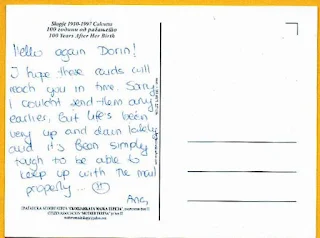 Skopje 1910-1997 Calcuta
100 години од раѓањето
100 Years After Her Birth
Hello again Dorin!
I hope these cards will
reach you in time. Sorry
I couldnt send them any
earlier, but life's been
very up and down lately
and it's been simply
tough to be able to
keep up with the mail
properly...
Ana,